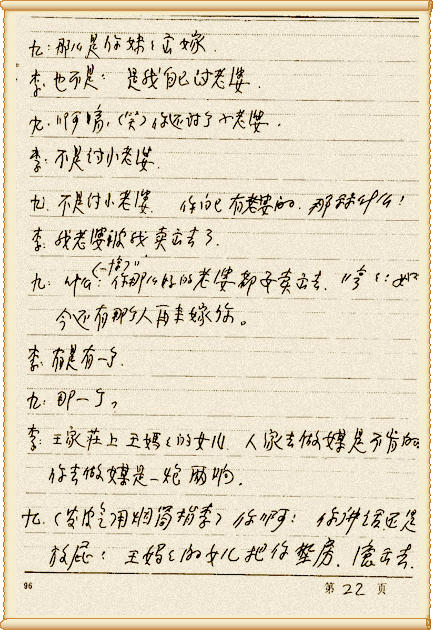 九:那么是你妹之去嫁.
李:也不是:是我自己讨老婆.
九.啊唷,(笑)你还讨了小老婆.
李:不是讨小老婆.
九.不是讨小老婆.你自己有老婆的.那算什么!
李.我老婆被我卖出去了.
九:什么:(一怔)"你那么好的老婆都要卖出去.如
今还有那个人再来嫁你。
李:有是有一个
九:那一个,
李:王家庄上王妈之的女儿.人家去做媒是不肯的
你去做媒是一炮两响.
九.(发皮气用烟筒指李)你啊:你讲话还是
放屁:王妈之的女儿把你垫房.出去
96 第22页